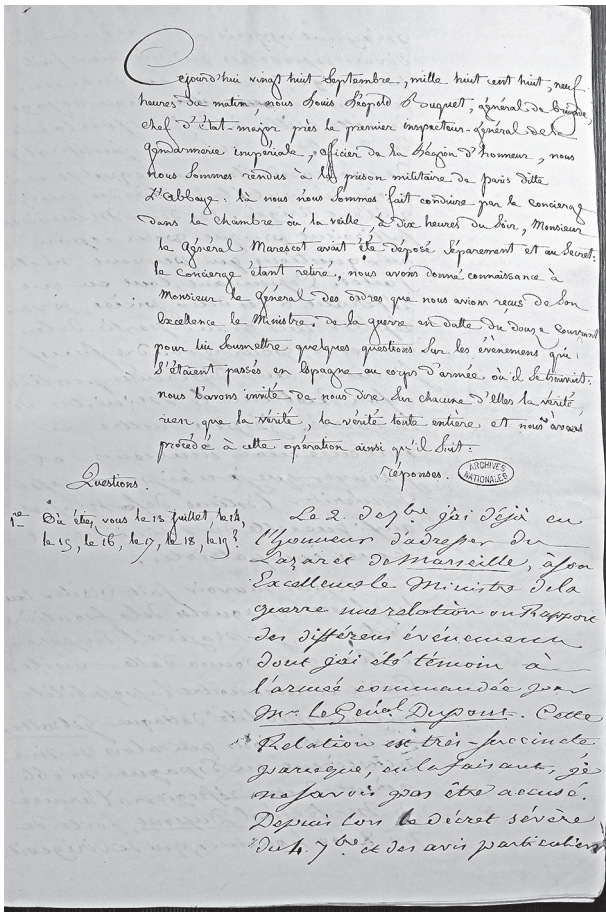 Cejourd'hui vingt huit Septembre, mille huit cent huit, neuf
heures du matin, nous Louis Léopold Buquet, général de brigade,
chef d'état-major près le premier inspecteur-général de la
gendarmerie impériale, officier de la Légion d'honneur, nous
nous sommes rendus à la prison militaire de paris ditte
L'abbaye: là nous nous sommes fait conduire par le concierge
dans la chambre où, la veille, à dix heures du soir, Monsieur
le Général Marescot avait été déposé séparement et au secret:
le concierge étant retiré, nous avons donné connaissance à
Monsieur le général des ordres que nous avions reçus de Son
Excellence le Ministre de la guerre en datte du douze courant
pour lui soumettre quelques questions sur les évènemens qui
s'étaient passés en Espagne au corps d'armée où il se trouvait:
nous l'avons invité de nous dire sur chacune d'elles la vérité,
rien que la vérité, la vérité toute entiere et nous avons
procédé à cette opération ainsi qu'il suit:
Questions.
réponses.
ARCHIVES
NATIONALES
1re Où étiez vous le 13 juillet, le 14,
le 15, le 16, le 17, le 18, le 19?
Le 2. de 7bre j'ai déjà eu
l'honneur d'adresser du
Lazaret de Marseille, à son
Excellence le Ministre de la
guerre une relation ou Rapport
des différens événemens
dont j'ai été témoin à
l'armée commandée par
Mr. le Genéal Dupont. Cette
Relation est très-succincte
parceque, en la faisant, je
ne savois pas être accusé.
Depuis lors le décret sévère
du 4. 7bre et des avis particuliers